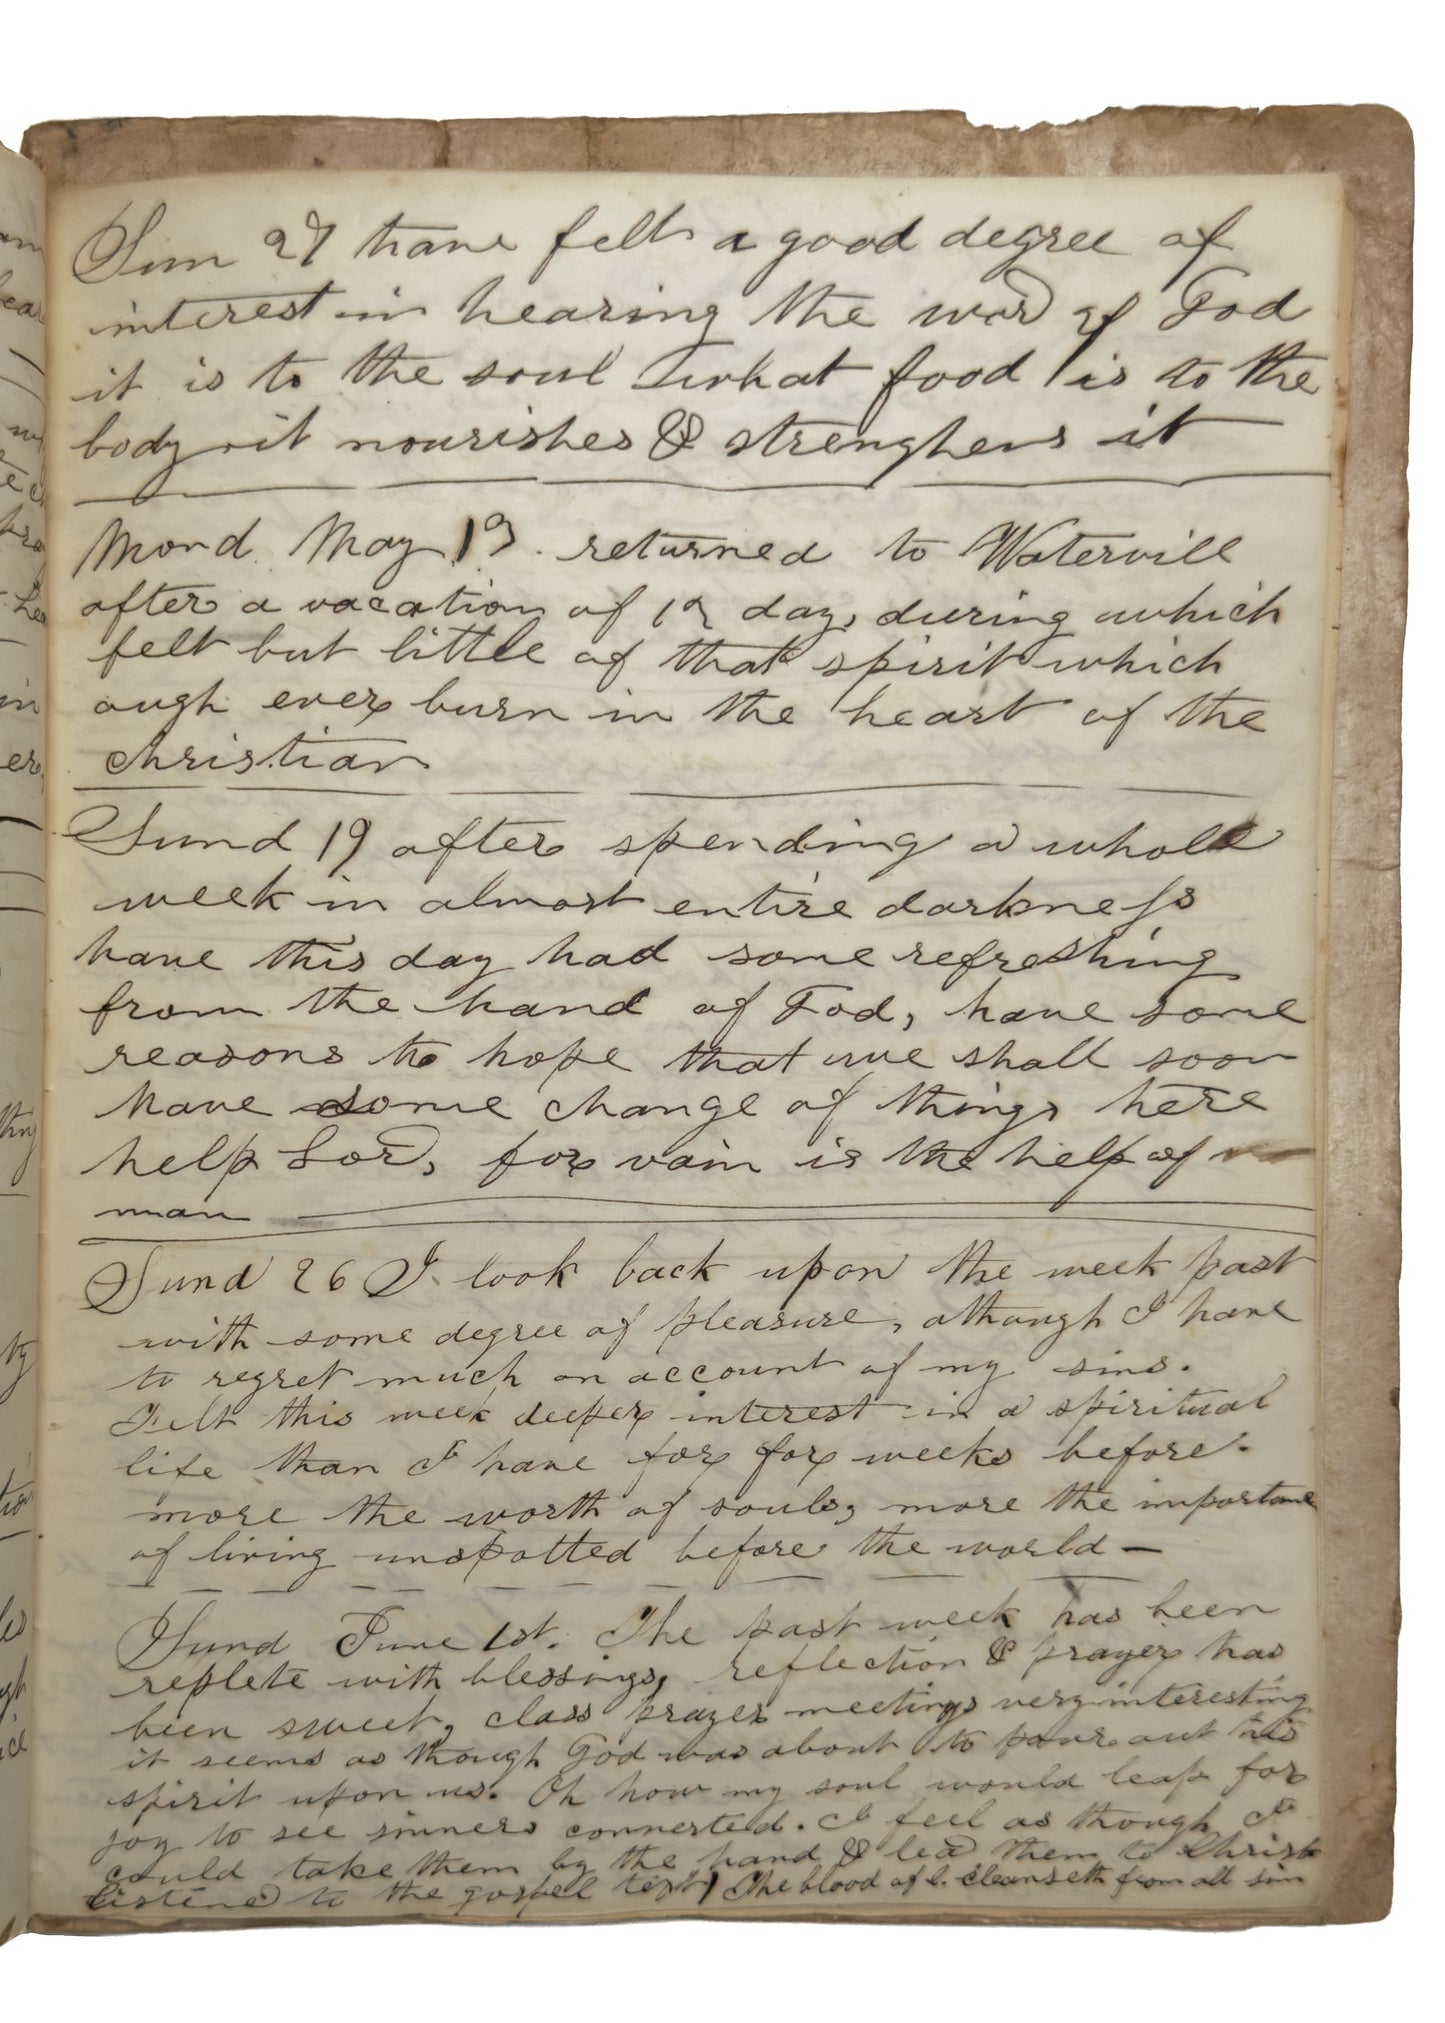 Sun 27 have felt a good degree of
interest in hearing the word of God
it is to the soul what food is to the
body it nourishes & strenghens it
Mond. May 13. returned to Watervill
after a vacation of 12 days, during which
felt but little of that spirit which
ough ever burn in the heart of the
christian
Sund 19 after spending a whole
week in almost entire darkness
have this day had some refreshing
from the hand of God, have some
reasons to hope that we shall soon
have some change of things here
help Lord, for vain is the help of
man
Sund 26 I look back upon the week past
with some degree of pleasure, although I have
to regret much on account of my sins.
Felt this week deeper interest in a spiritual
life than I have for for weeks before.
more the worth of souls, more the importance
of living unspotted before the world —
Sund June 1st. The past week has been
replete with blessings, reflection & prayer has
been sweet, class prayer meetings very interesting
it seems as though God was about to pour out his
spirit upon us. Oh how my soul would leap for
joy to see sinners converted. I feel as though I
could take them by the hand & lead them to Christ
Listened to the gospel text The blood of C. cleanseth from all sin